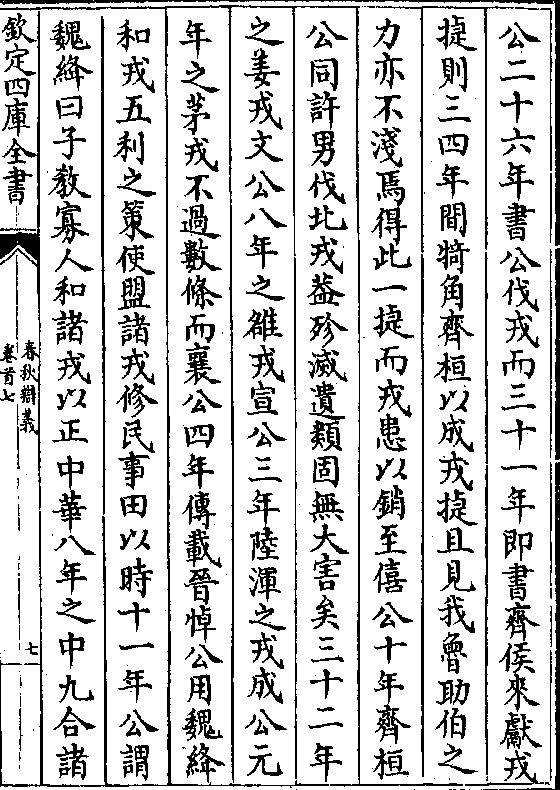 公二十六年書公伐戎而三十一年即書齊侯來獻戎
捷則三四年間犄角齊桓以成戎捷且見我魯助伯之
力亦不淺焉得此一捷而戎患以銷至僖公十年齊桓
公同許男伐北戎葢殄滅遺類固無大害矣三十二年
之姜戎文公八年之雒戎宣公三年陸渾之戎成公元
年之茅戎不過數條而襄公四年傳載晉悼公用魏絳
和戎五利之策使盟諸戎修民事田以時十一年公謂
魏絳曰子教寡人和諸戎以正中華八年之中九合諸
欽定四庫全書
春秋辯義
卷首七
七